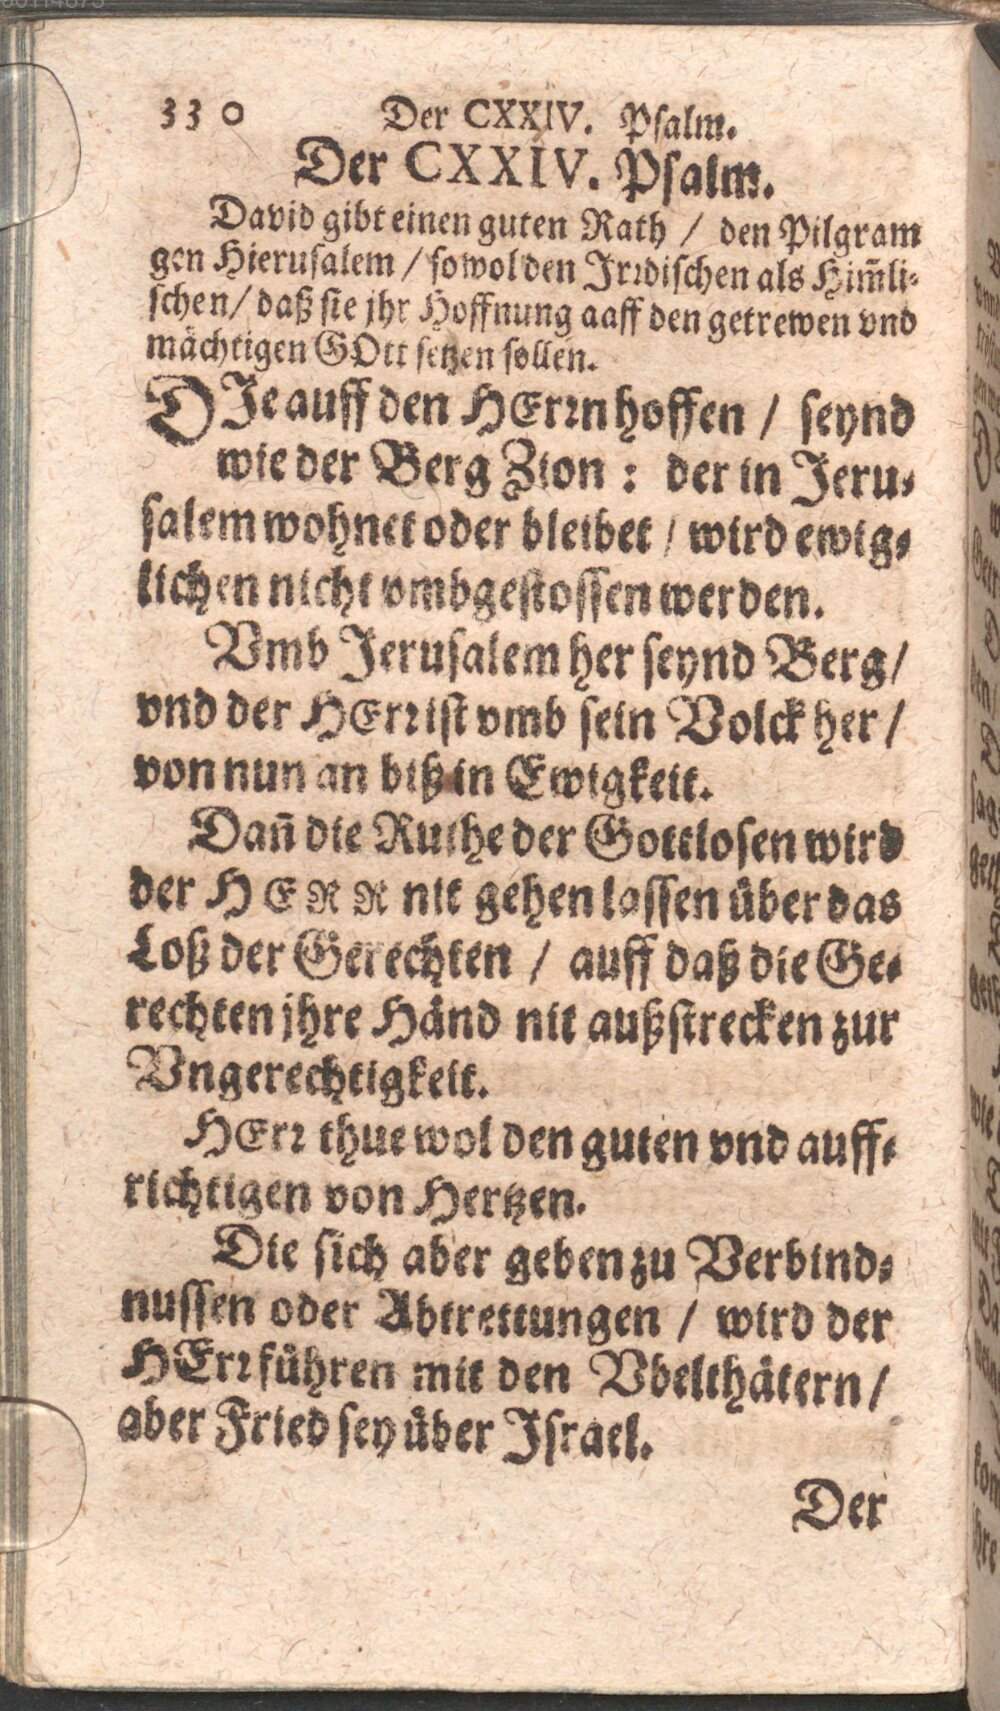 330 Der CXXIV. Psalm.
Der CXXIV. Psalm.
David gibt einen guten Rath / den Pilgram
gen Hierusalem / sowol den Jrꝛdischen als Him̃li-
schen / daß sie jhr Hoffnung aaff den getrewen vnd
mächtigen GOtt setzen sollen.
DJe auff den HErꝛn hoffen / seynd
wie der Berg Zion : der in Jeru-
salem wohnet oder bleibet / wird ewig-
lichen nicht vmbgestossen werden.
Vmb Jerusalem her seynd Berg /
vnd der HErꝛ ist vmb sein Volck her /
von nun an biß in Ewigkeit.
Dañ die Ruthe der Gottlosen wird
der HERR nit gehen lassen über das
Loß der Gerechten / auff daß die Ge-
rechten jhre Händ nit außstrecken zur
Vngerechtigkeit.
HErꝛ thue wol den guten vnd auff-
richtigen von Hertzen.
Die sich aber geben zu Verbind-
nussen oder Abtrettungen / wird der
HErꝛ führen mit den Vbelthätern /
aber Fried sey über Jsrael.
Der